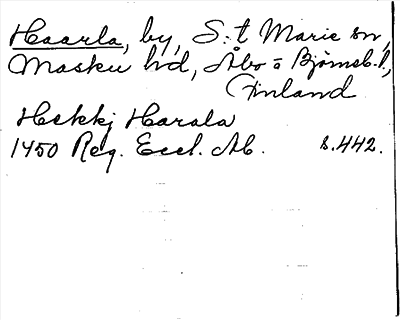 Haarla, by, S:t Marie sn,
Masku hd, Åbo o Björneb. l,
Finland
Hekkj Harala
1450 Reg. Eccl. Ab. s. 442.